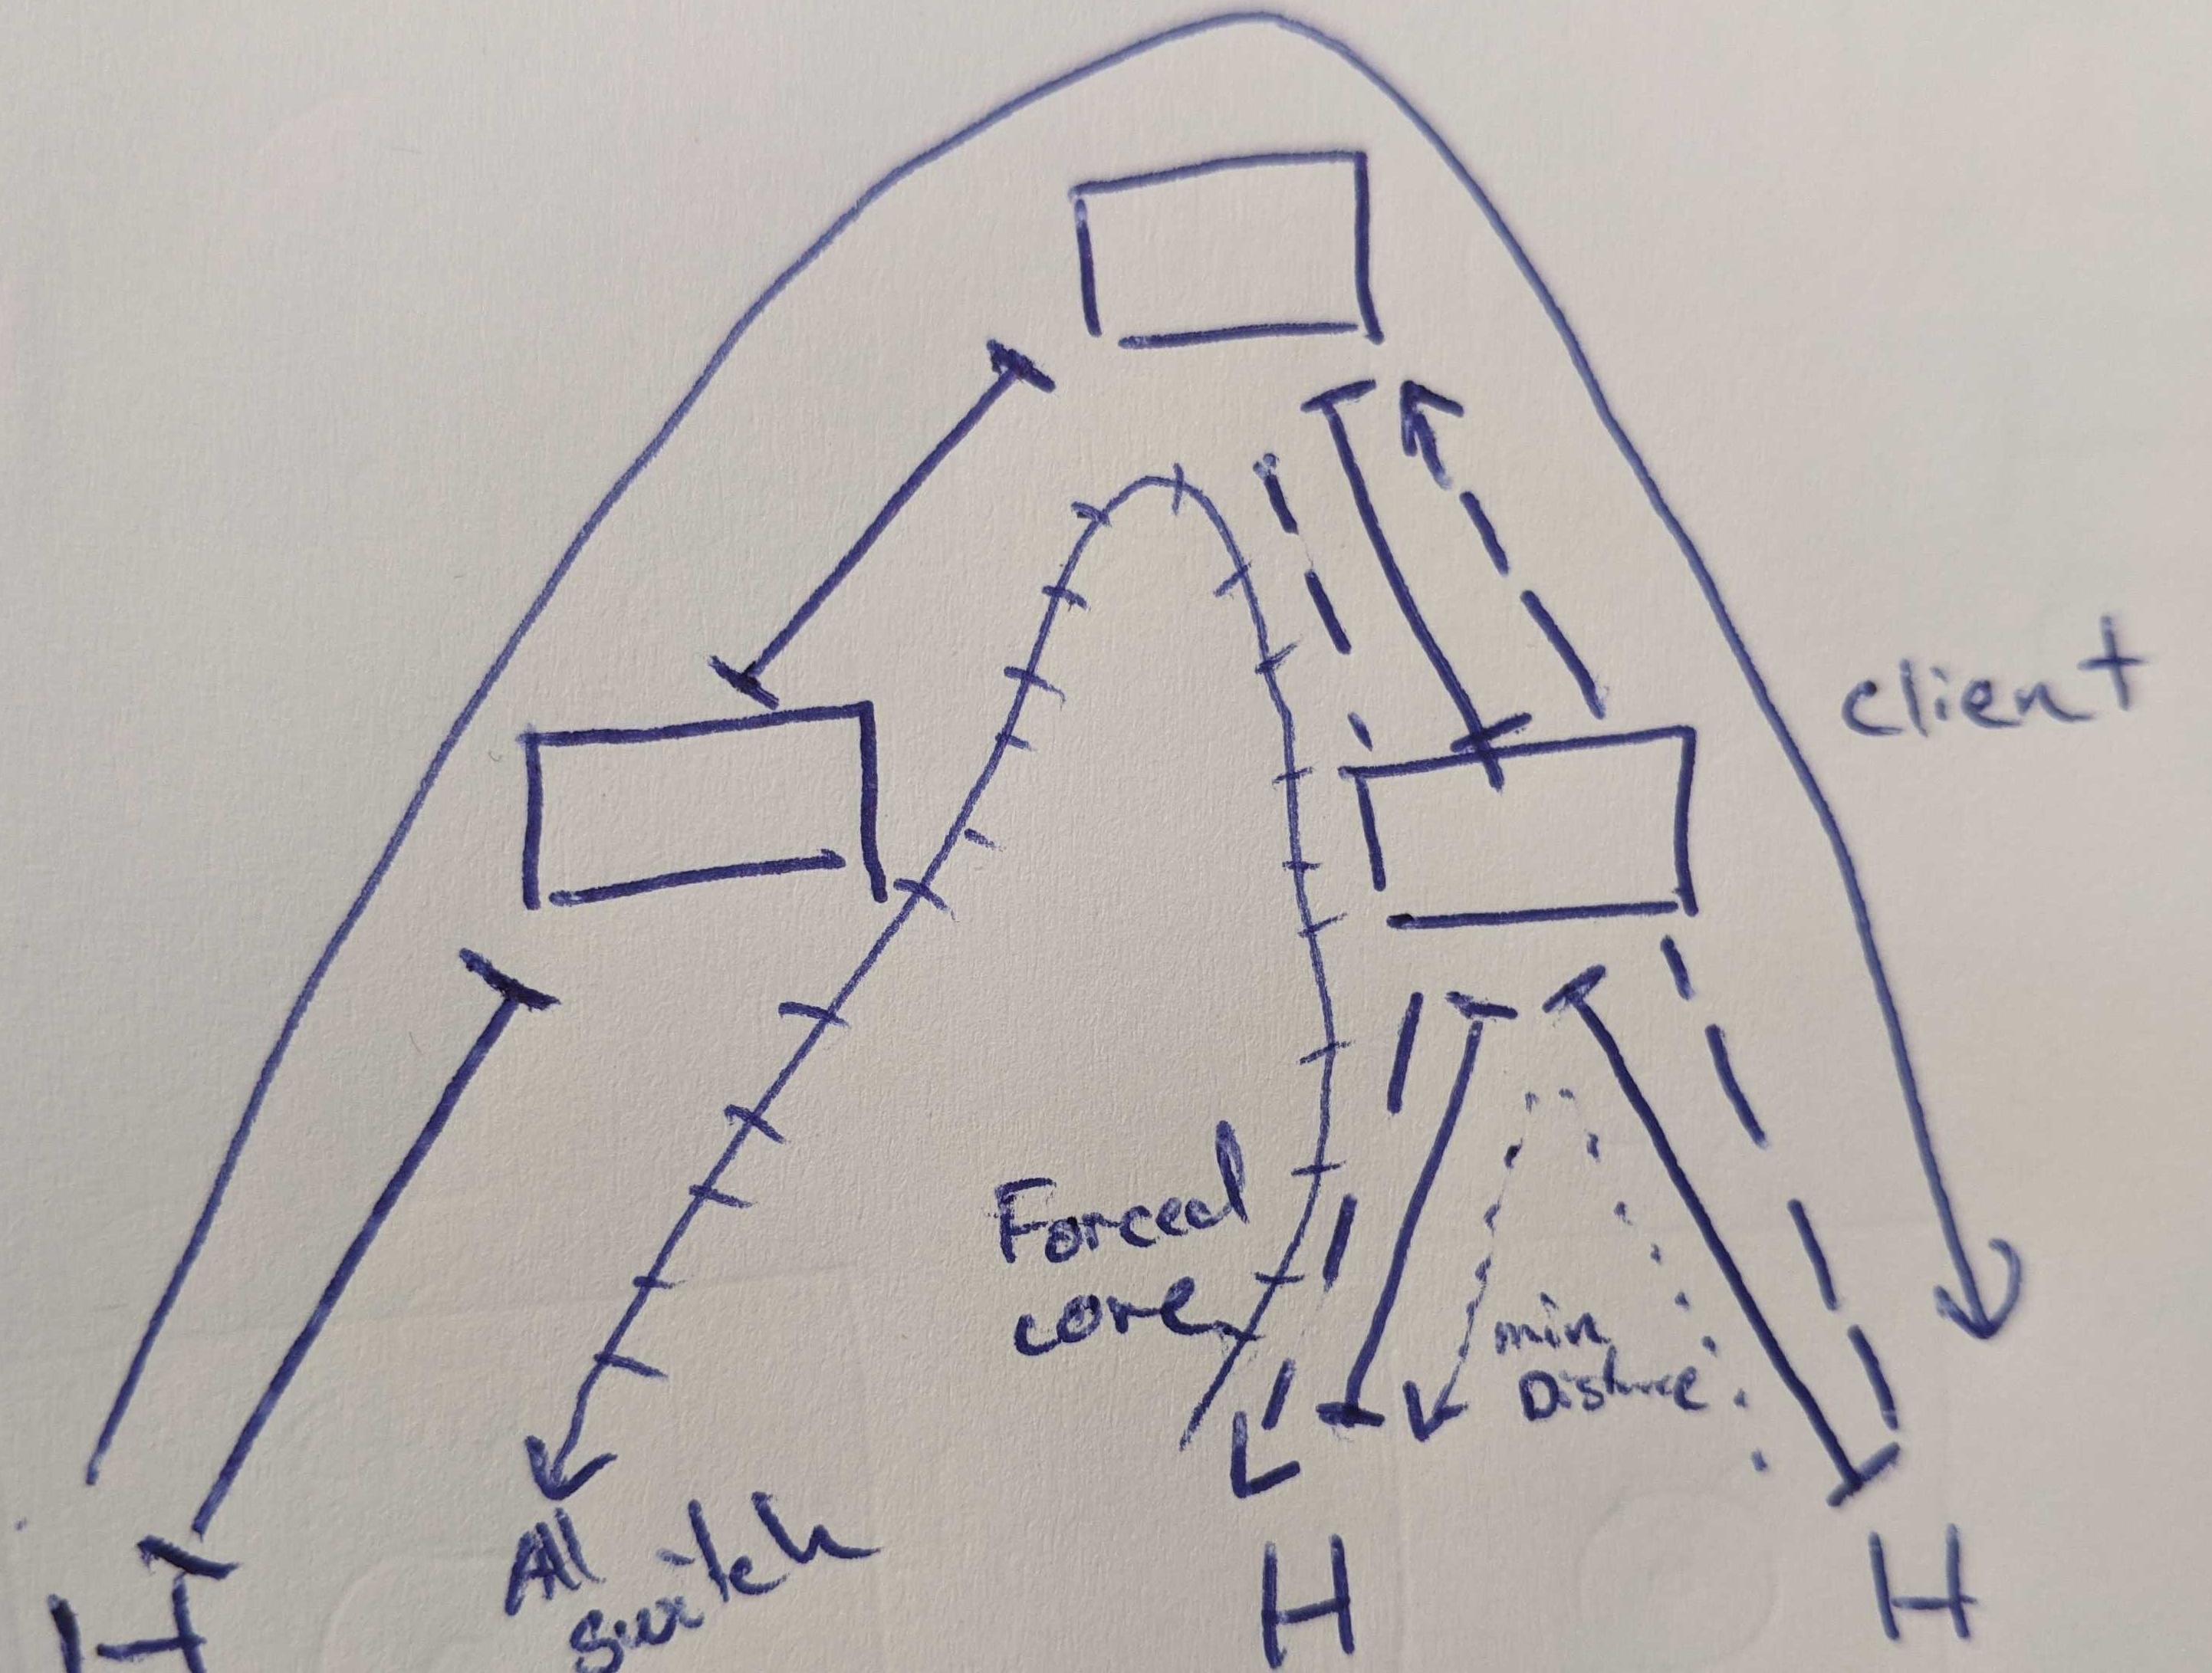 client
Forced
core
min
Distance
All
switch
H
H
H